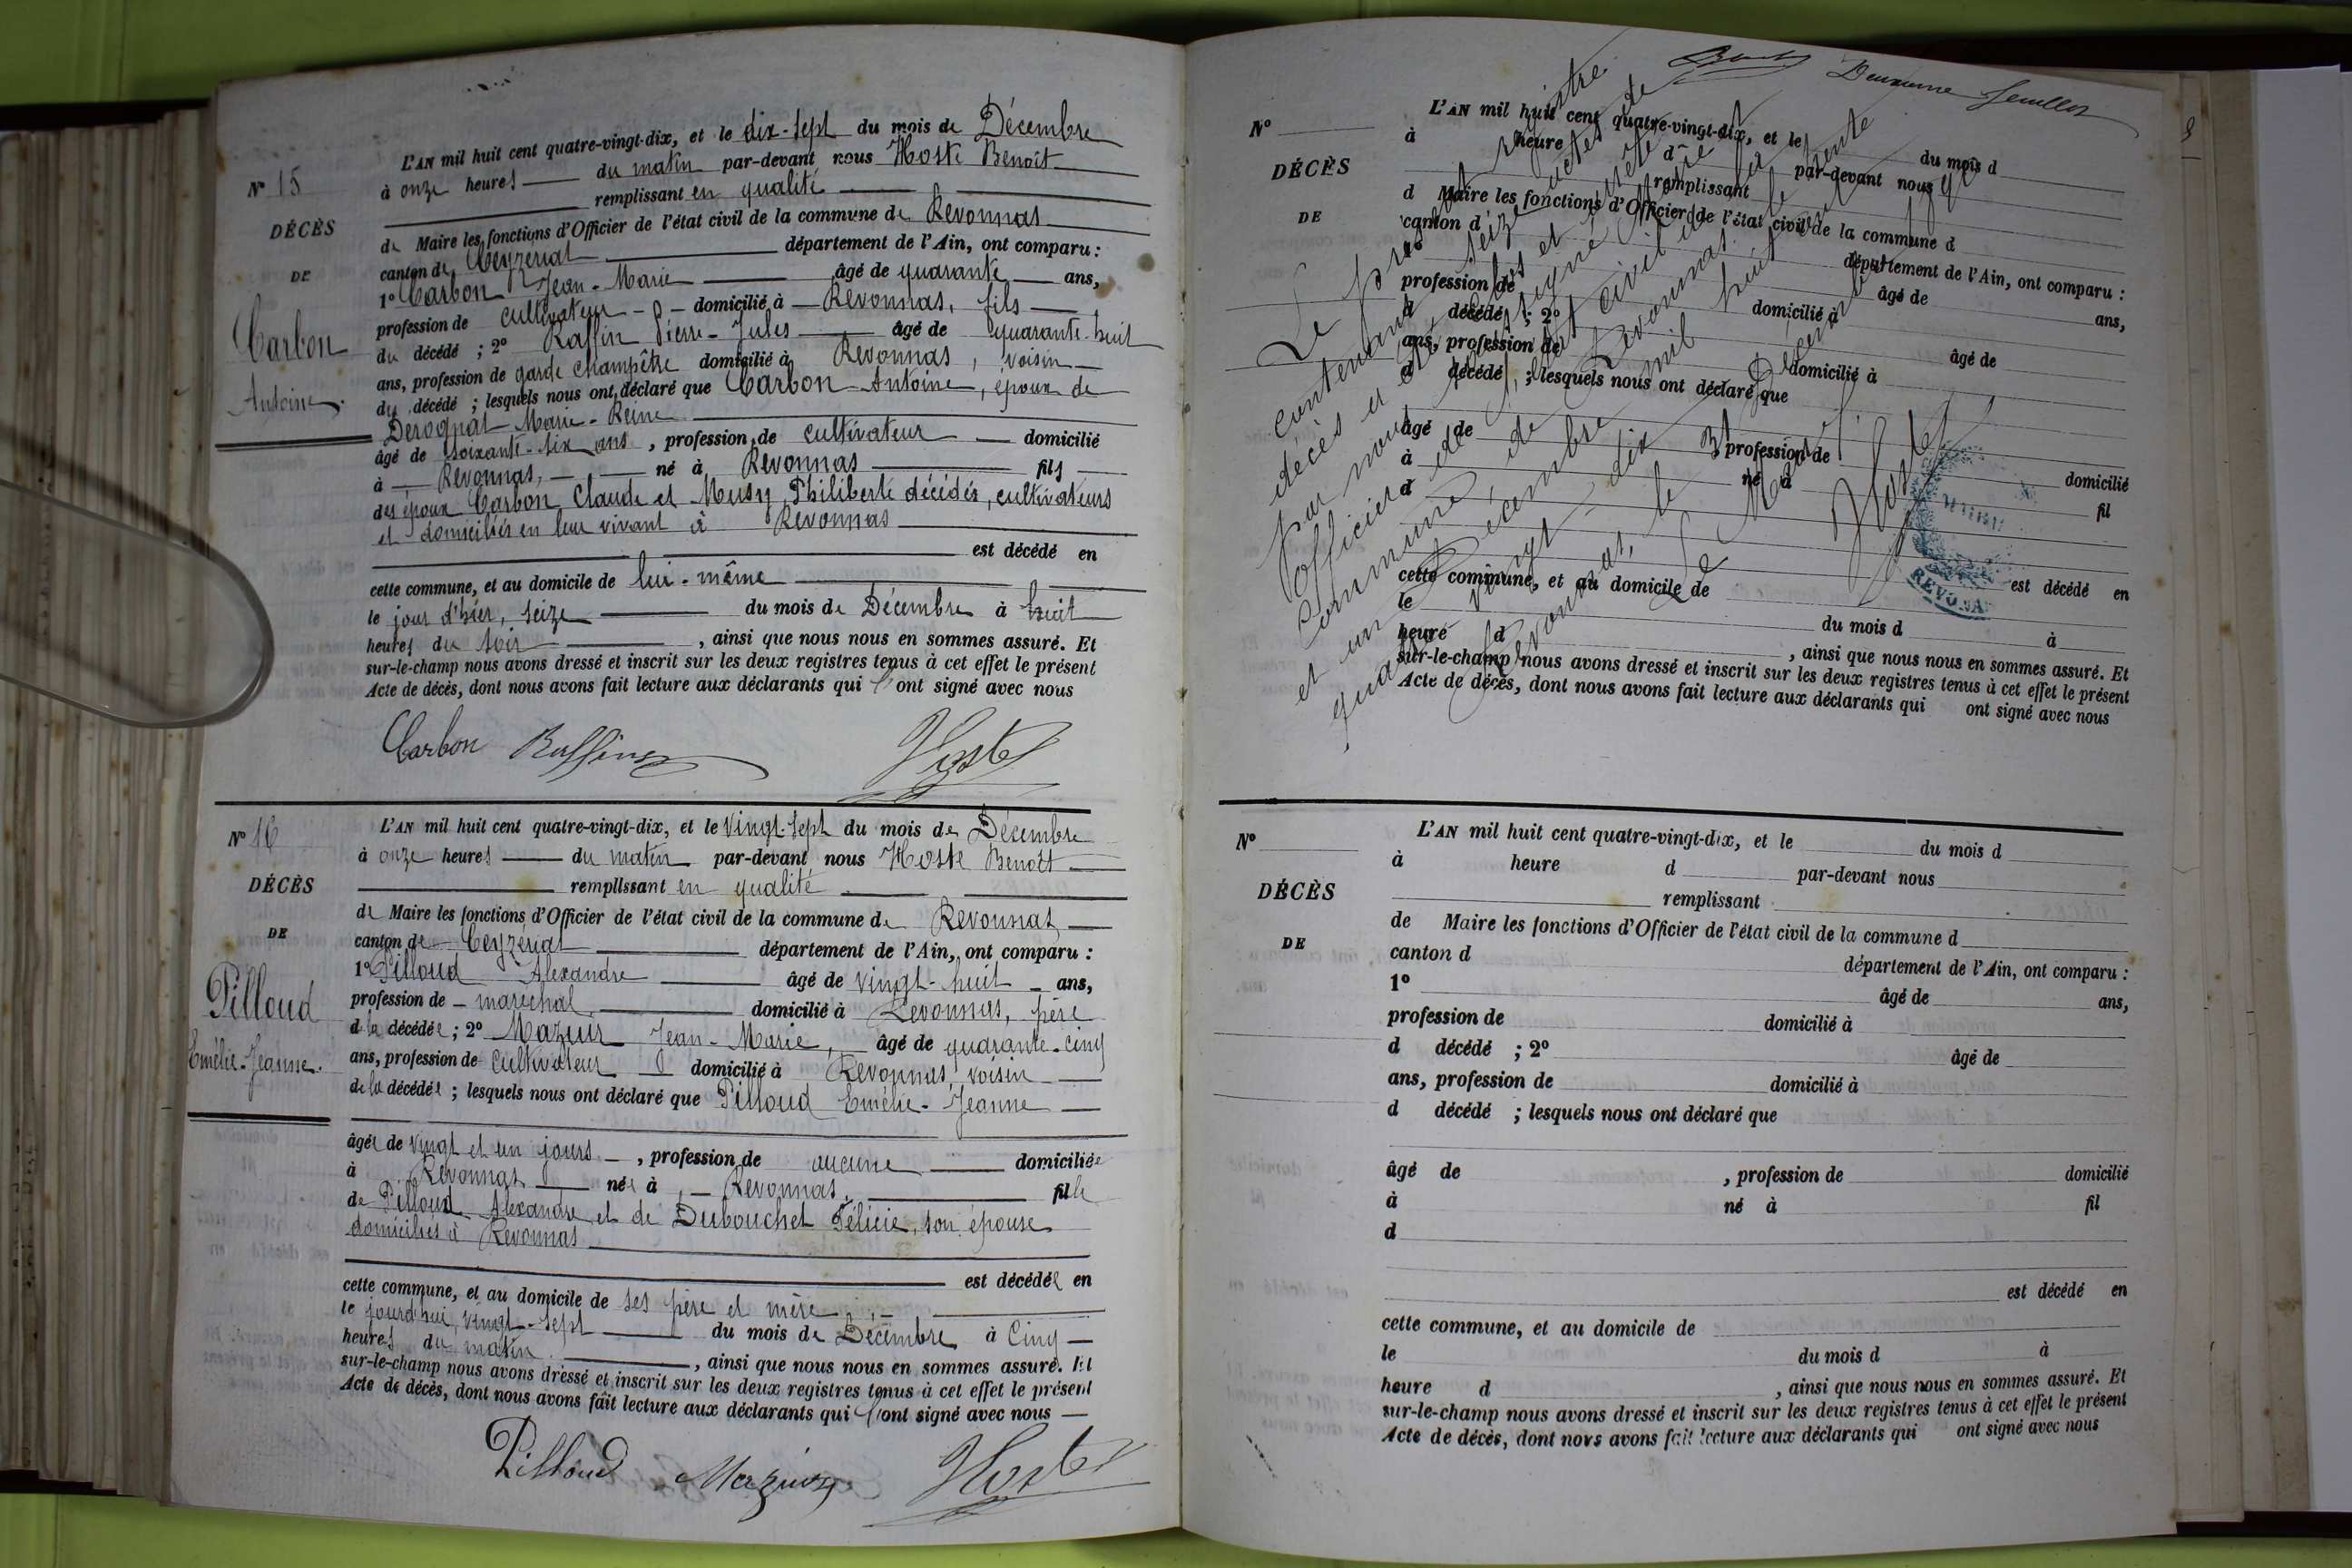 N° 15
DÉCÈS
DE
Carbon
Antoine.
L'AN mil huit cent quatre-vingt-dix, et le dix-sept du mois de Décembre
à onze heures du matin par-devant nous Hoste Benoît
remplissant en qualité
de Maire les fonctions d'Officier de l'état civil de la commune de Revonnas
canton de Ceyzériat département de l'Ain, ont comparu :
1° Carbon Jean-Marie âgé de quarante ans,
profession de cultivateur domicilié à Revonnas, fils
du décédé ; 2° Raffin Pierre-Jules âgé de quarante-huit
ans, profession de garde champêtre domicilié à Revonnas, voisin
du décédé ; lesquels nous ont déclaré que Carbon Antoine, époux de
Derognat Marie-Reine
âgé de soixante-six ans, profession de cultivateur domicilié
à Revonnas, né à Revonnas fils
des époux Carbon Claude et Musy Philiberte décédés, cultivateurs
et domiciliés en leur vivant à Revonnas
est décédé en
cette commune, et au domicile de lui-même
le jour d'hier, seize du mois de Décembre à huit
heures du soir, ainsi que nous nous en sommes assuré. Et
sur-le-champ nous avons dressé et inscrit sur les deux registres tenus à cet effet le présent
Acte de décès, dont nous avons fait lecture aux déclarants qui l'ont signé avec nous
Carbon Raffin Hoste
N° 16
DÉCÈS
DE
Pilloud
Emélie-Jeanne.
L'AN mil huit cent quatre-vingt-dix, et le vingt-sept du mois de Décembre
à onze heures du matin par-devant nous Hoste Benoît
remplissant en qualité
de Maire les fonctions d'Officier de l'état civil de la commune de Revonnas
canton de Ceyzériat département de l'Ain, ont comparu :
1° Pilloud Alexandre âgé de vingt-huit ans,
profession de maréchal domicilié à Revonnas, père
de la décédée ; 2° Mazuir Jean-Marie, âgé de quarante-cinq
ans, profession de cultivateur domicilié à Revonnas, voisin
de la décédée ; lesquels nous ont déclaré que Pilloud Emélie-Jeanne
âgée de vingt et un jours, profession de aucune domiciliée
à Revonnas née à Revonnas, fille
de Pilloud Alexandre et de Dubouchet Félicie, son épouse
domiciliés à Revonnas
est décédée en
cette commune, et au domicile de ses père et mère
le jourd'hui, vingt-sept du mois de Décembre à cinq
heures du matin, ainsi que nous nous en sommes assuré. Et
sur-le-champ nous avons dressé et inscrit sur les deux registres tenus à cet effet le présent
Acte de décès, dont nous avons fait lecture aux déclarants qui l'ont signé avec nous
Pilloud Mazuir Hoste
feuillet
N°
DÉCÈS
DE
L'AN mil huit cent quatre-vingt-dix, et le du mois d
à heure d par-devant nous
remplissant
d Maire les fonctions d'Officier de l'état civil de la commune d
canton d département de l'Ain, ont comparu :
1° âgé de ans,
profession de domicilié à
d décédé ; 2° âgé de
ans, profession de domicilié à
d décédé ; lesquels nous ont déclaré que
âgé de , profession de domicilié
à né à fil
d
est décédé en
cette commune, et au domicile de
le du mois d à
heure d , ainsi que nous nous en sommes assuré. Et
sur-le-champ nous avons dressé et inscrit sur les deux registres tenus à cet effet le présent
Acte de décès, dont nous avons fait lecture aux déclarants qui ont signé avec nous
Le présent registre
contenant seize actes de
décès a été clos et arrêté
par nous soussigné Maire
officier de l'état civil de la
commune de Revonnas le trente
et un Décembre mil huit cent
quatre-vingt-dix
Revonnas, le 31 Décembre 1890
Le Maire
Hoste
MAIRIE
REVONNAS
N°
DÉCÈS
DE
L'AN mil huit cent quatre-vingt-dix, et le du mois d
à heure d par-devant nous
remplissant
de Maire les fonctions d'Officier de l'état civil de la commune d
canton d département de l'Ain, ont comparu :
1° âgé de ans,
profession de domicilié à
d décédé ; 2° âgé de
ans, profession de domicilié à
d décédé ; lesquels nous ont déclaré que
âgé de , profession de domicilié
à né à fil
d
est décédé en
cette commune, et au domicile de
le du mois d à
heure d , ainsi que nous nous en sommes assuré. Et
sur-le-champ nous avons dressé et inscrit sur les deux registres tenus à cet effet le présent
Acte de décès, dont nous avons fait lecture aux déclarants qui ont signé avec nous